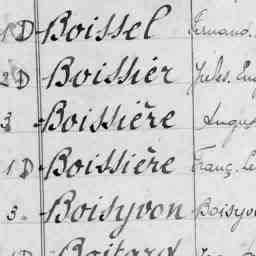 1 D - Boissel Fernand.
2 D Boissiér Jules. Eug
3. - Boissière Augus
1 D Boissière Franç. Le
3. - Boisyvon Boisyvo
1 D Boitard